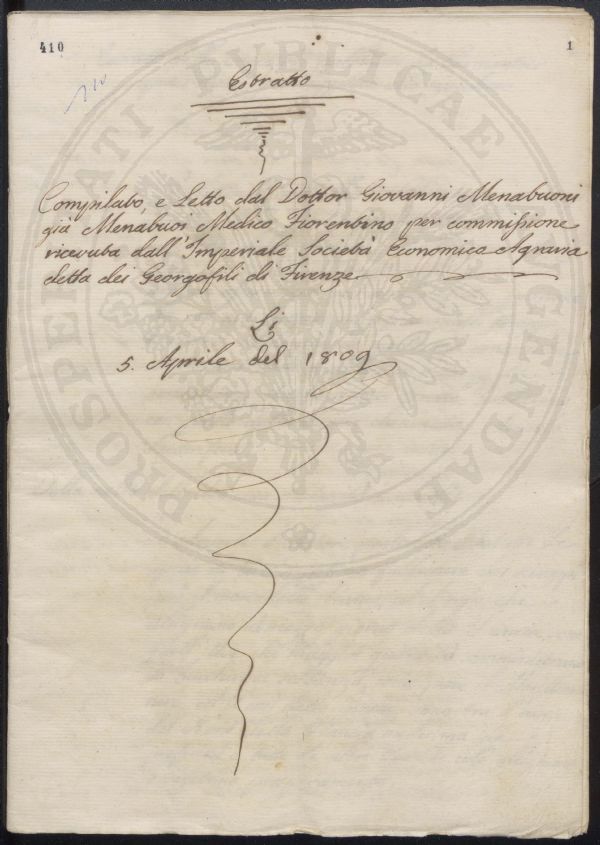 410
1
Estratto
Compilato, e Letto dal Dottor Giovanni Menabuoni
già Menabuoi Medico Fiorentino per commissione
ricevuta dall'Imperiale Società Economica Agraria
detta dei Georgofili di Firenze
Li
5. Aprile del 1809
PROSPERITATI PUBLICAE AUGENDAE